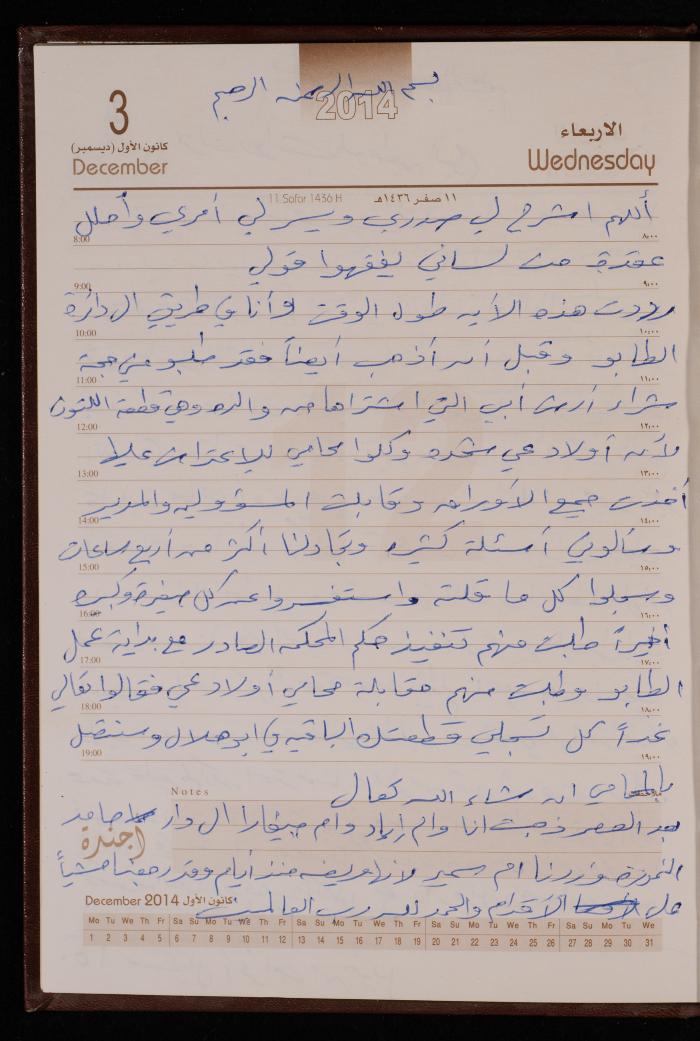 بسم الله الرحمن الرحيم
2014
3
كانون الأول (ديسمبر)
December
الاربعاء
Wednesday
11 Safar 1436 H
١١ صفر ١٤٣٦هـ
أللهم اشرح لي صدري ويسر لي أمري وأحلل
8:00 ٨,٠٠
عقدة من لساني يفقهوا قولي
9:00 ٩,٠٠
رددت هذه الآيه طول الوقت وأنا في طريقي الى دائرة
10:00 ١٠,٠٠
الطابو وقبل أن أذهب أيضاً فقد طلبو مني حجة
11:00 ١١,٠٠
شراء أرض أبي التي اشتراها من والده وهي قطعة
12:00 ١٢,٠٠
لأن أولاد عمي وكلوا محامي للإعتراض علينا
13:00 ١٣,٠٠
أخذت جميع الأوراق وقابلت المسؤولين والمدير
14:00 ١٤,٠٠
وسألوني أسئلة كثيره وتجادلنا أكثر من أربع ساعات
15:00 ١٥,٠٠
وسجلوا كل ما قلته واستفسروا عن كل صغيرة وكبيره
16:00 ١٦,٠٠
أخيراً طلبت منهم تنفيذ حكم المحكمه الصادر مع بداية عمل
17:00 ١٧,٠٠
الطابو وطلبت منهم مقابلة محامي أولاد عمي فقالوا تعالي
18:00 ١٨,٠٠
غداً كل تسجلي قطعتك الباقيه في ابو هلال وسنتصل
19:00 ١٩,٠٠
بالمحامي ان شاء الله تعالى
Notes
بعد العصر ذهبت انا وام إياد وام الى دار حامد
اجندة
وزرنا ام سمير لانها مريضه منذ أيام وقد رجعنا مشياً
December 2014 كانون الأول
على الأقدام والحمد لله رب العالمين
Mo Tu We Th Fr Sa Su Mo Tu We Th Fr Sa Su Mo Tu We Th Fr Sa Su Mo Tu We Th Fr Sa Su Mo Tu We
1 2 3 4 5 6 7 8 9 10 11 12 13 14 15 16 17 18 19 20 21 22 23 24 25 26 27 28 29 30 31